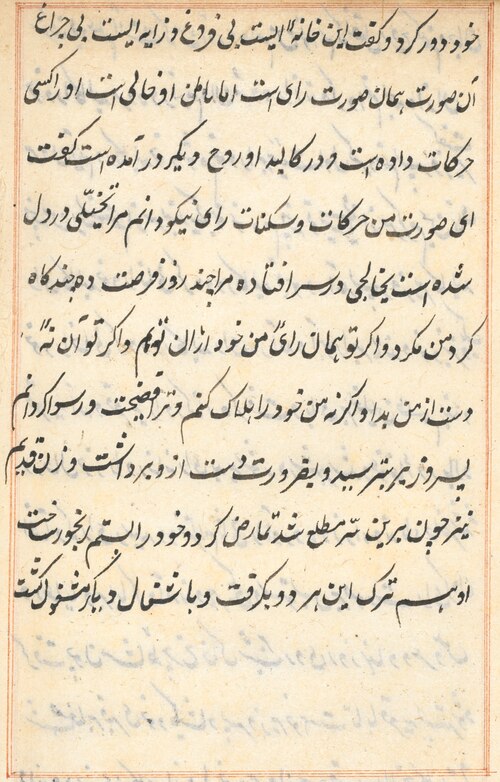 خود دور کرد و کفت این خانهٔ ایست بی فروغ و زایه ایست بی چراغ
آن صورت همان صورت رای است اما باطن او خالی است او را کسی
حرکات داده است و در کالبد او روح دیکر در آمده است کفت
ای صورت من حرکات و سکنات رای نیکو دانم مرا تخیّلی در دل
شده است یخالجی در سر افتاده مرا چند روز فرصت ده چند کاه
کرد من مکرد و اکر تو همان رائ من خود از ان توئم و اکر تو آن نهٔ
دست از من بدار و اکر نه من خود را هلاک کنم و ترا فضیحت و رسوا کردانم
پسر وزیر بترسید و بضرورت دست از و برداشت و زن قدیم
نیز چون برین سرّ مطلع شد تمارض کرد و خود را بستم رنجور ساخت
او هم ترک این هر دو بکرفت و باشتغال دیکر مشغول کشت